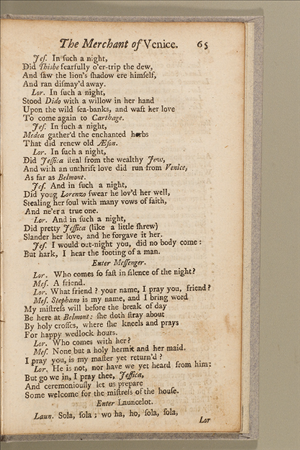 The Merchant of Venice. 65
Jeſ. In ſuch a night,
Did Thisbe fearfully o'er-trip the dew,
And ſaw the lion's ſhadow ere himſelf,
And ran diſmay'd away.
Lor. In ſuch a night,
Stood Dido with a willow in her hand
Upon the wild ſea-banks, and waft her love
To come again to Carthage.
Jeſ. In ſuch a night,
Medea gather'd the enchanted herbs
That did renew old Æſon.
Lor. In ſuch a night,
Did Jeſſica ſteal from the wealthy Jew,
And with an unthrift love did run from Venice,
As far as Belmont.
Jeſ. And in ſuch a night,
Did young Lorenzo ſwear he lov'd her well,
Stealing her ſoul with many vows of faith,
And ne'er a true one.
Lor. And in ſuch a night,
Did pretty Jeſſica (like a little ſhrew)
Slander her love, and he forgave it her.
Jeſ. I would out-night you, did no body come:
But hark, I hear the footing of a man.
Enter Meſſenger.
Lor. Who comes ſo faſt in ſilence of the night?
Meſ. A friend.
Lor. What friend? your name, I pray you, friend?
Meſ. Stephano is my name, and I bring word
My miſtreſs will before the break of day
Be here at Belmont: ſhe doth ſtray about
By holy croſſes, where ſhe kneels and prays
For happy wedlock hours.
Lor. Who comes with her?
Meſ. None but a holy hermit and her maid.
I pray you, is my maſter yet return'd?
Lor. He is not, nor have we yet heard from him:
But go we in, I pray thee, Jeſſica,
And ceremoniouſly let us prepare
Some welcome for the miſtreſs of the houſe.
Enter Launcelot.
Laun. Sola, ſola; wo ha, ho, ſola, ſola,
Lor